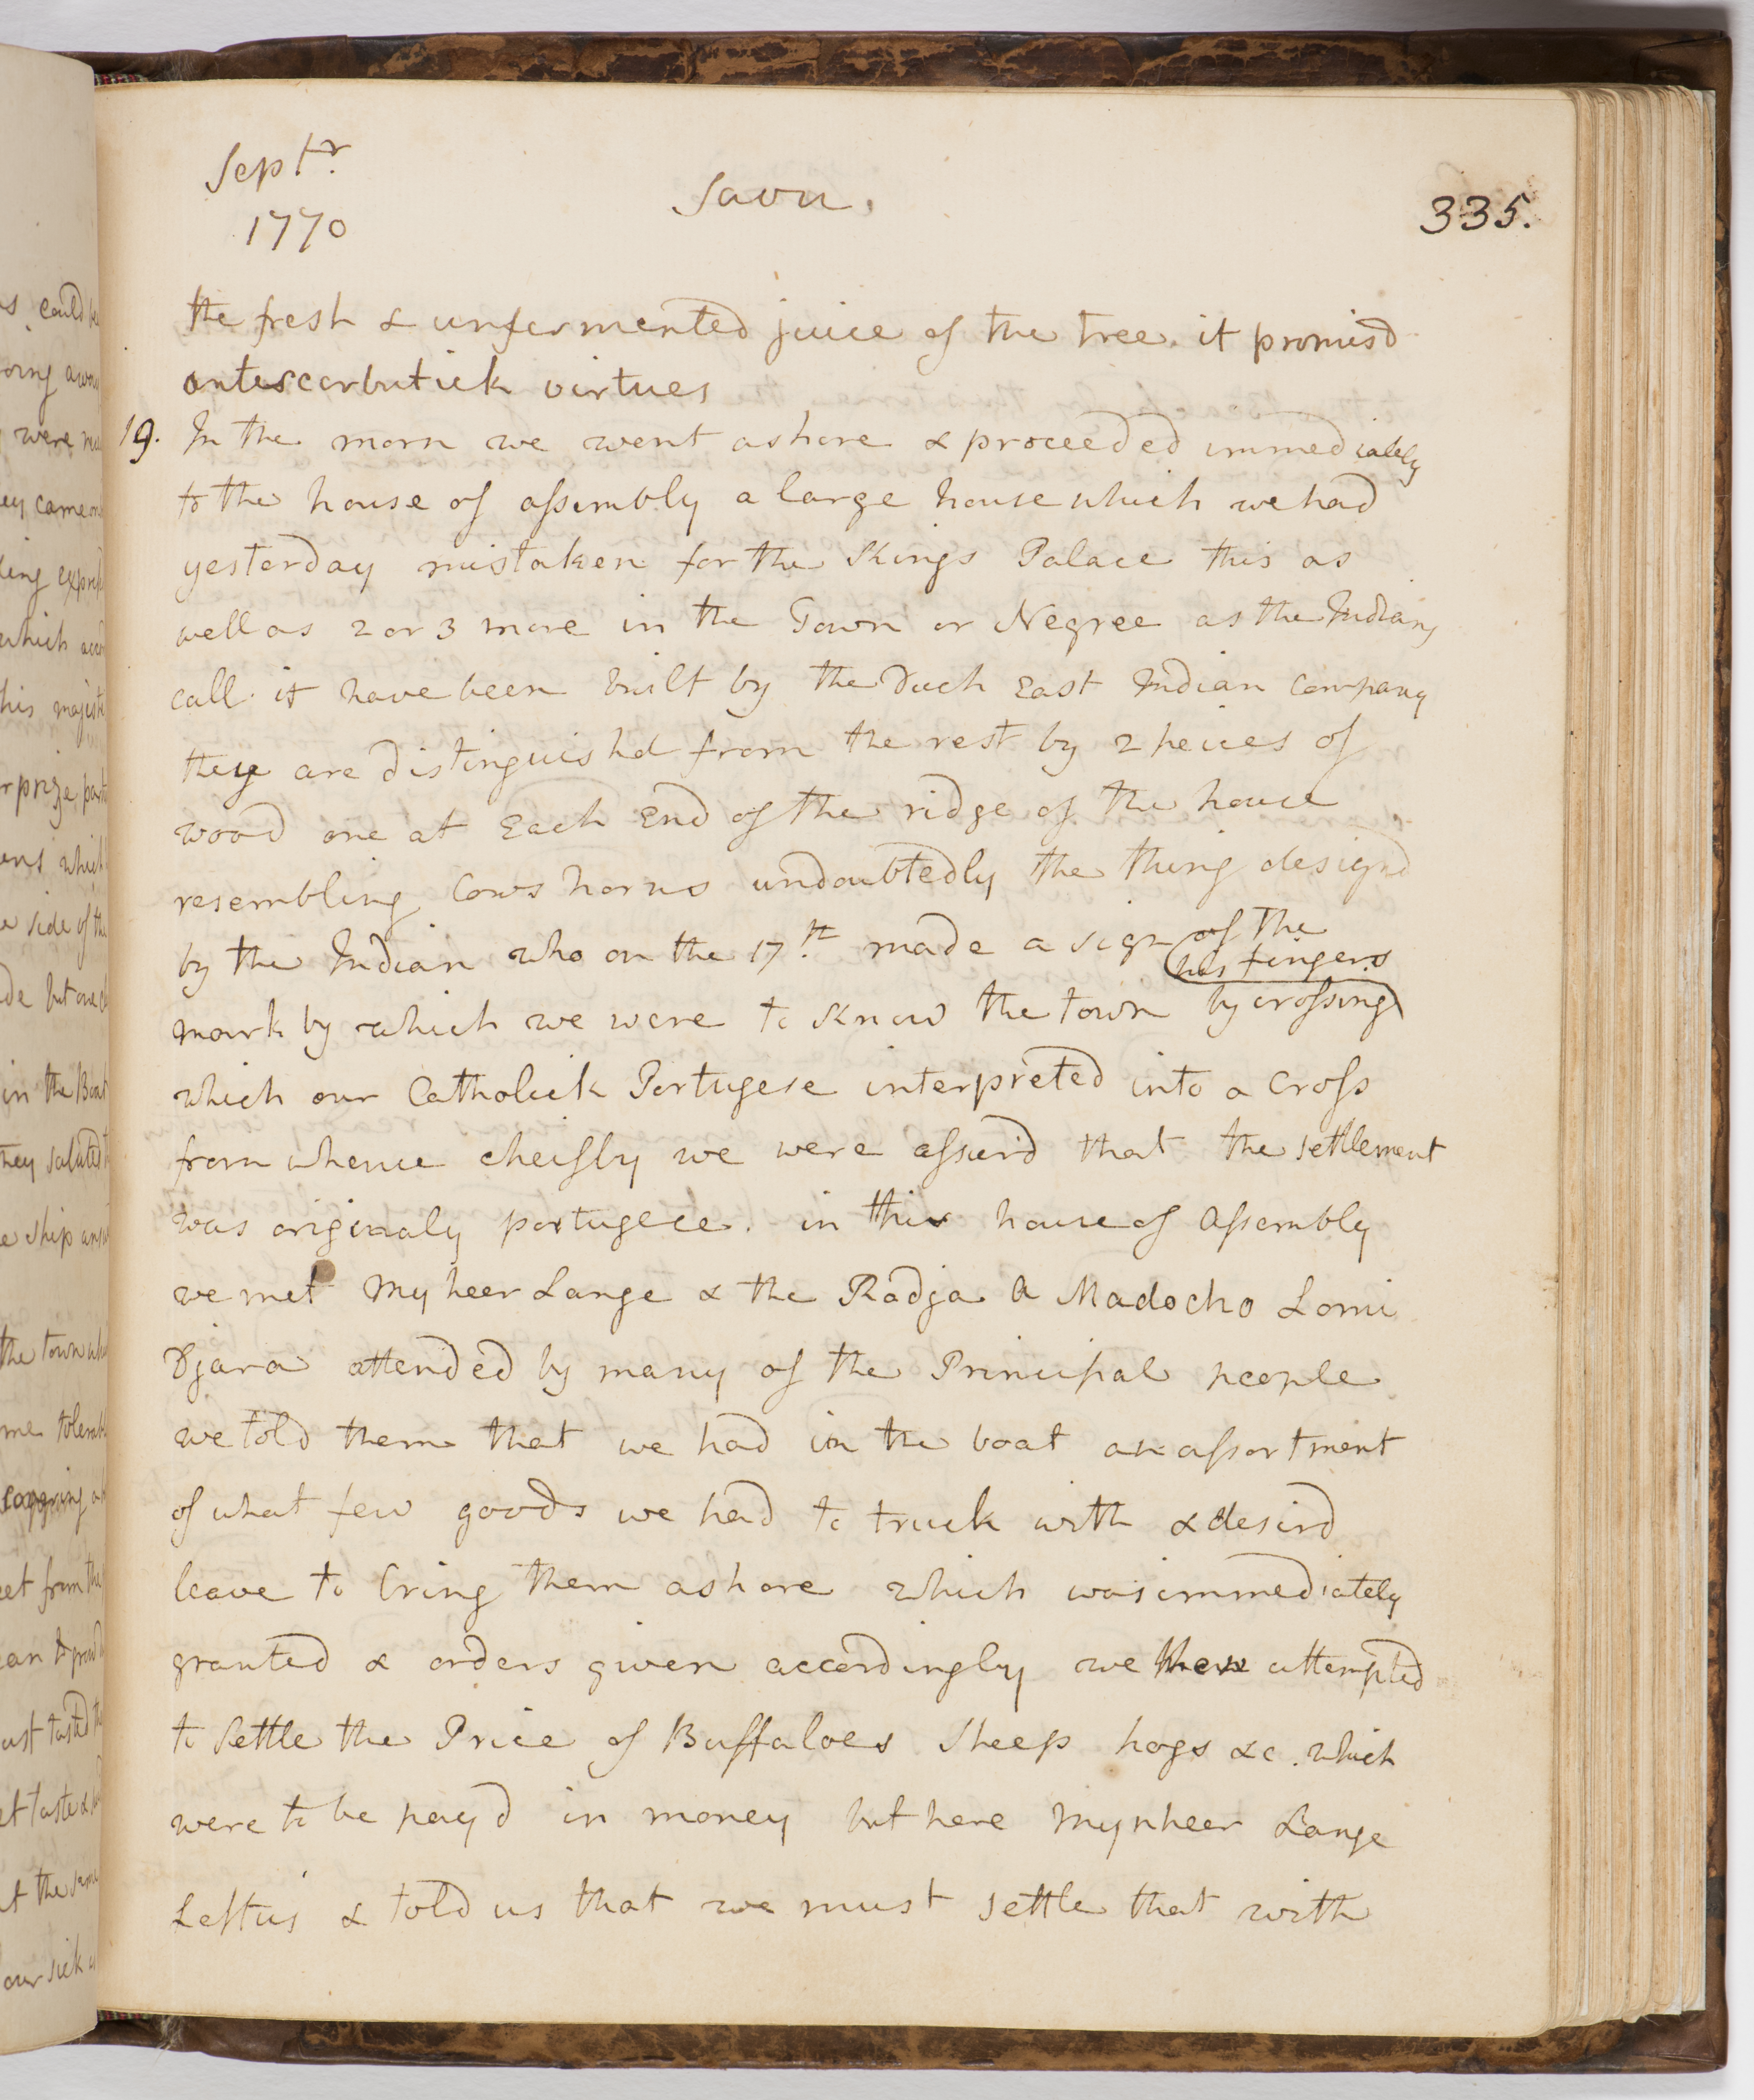 Septr.
1770
Savu.
335.
the fresh & unfermented juice of the tree. it promisd
antiscorbutick virtues
19. In the morn we went ashore & proceeded immediately
to the house of assembly a large house which we had
yesterday mistaken for the Kings Palace this as
well as 2 or 3 more in the Town or Negree as the Indians
call it have been built by the Duch East Indian Company
they are distinguishd from the rest by 2 peices of
wood one at Each End of the ridge of the house
resembling Cows horns undoubtedly the thing designd
by the Indian who on the 17th made a sign of the
mark by which we were to know the town by crossing
his fingers
which our Catholick Portugese interpreted into a Cross
from whence cheifly we were assurd that the settlement
was originaly portugese. in this house of Assembly
we met Mynheer Lange & the Radja A Madocho Lomi
Djara attended by many of the Principal people
we told them that we had in the boat an assortment
of what few goods we had to truck with & desird
leave to bring them ashore which was immediately
granted & orders given accordingly we then attempted
to settle the Price of Buffaloes Sheep hogs &c. which
were to be payd in money but here Mynheer Lange
Left us & told us that we must settle that with